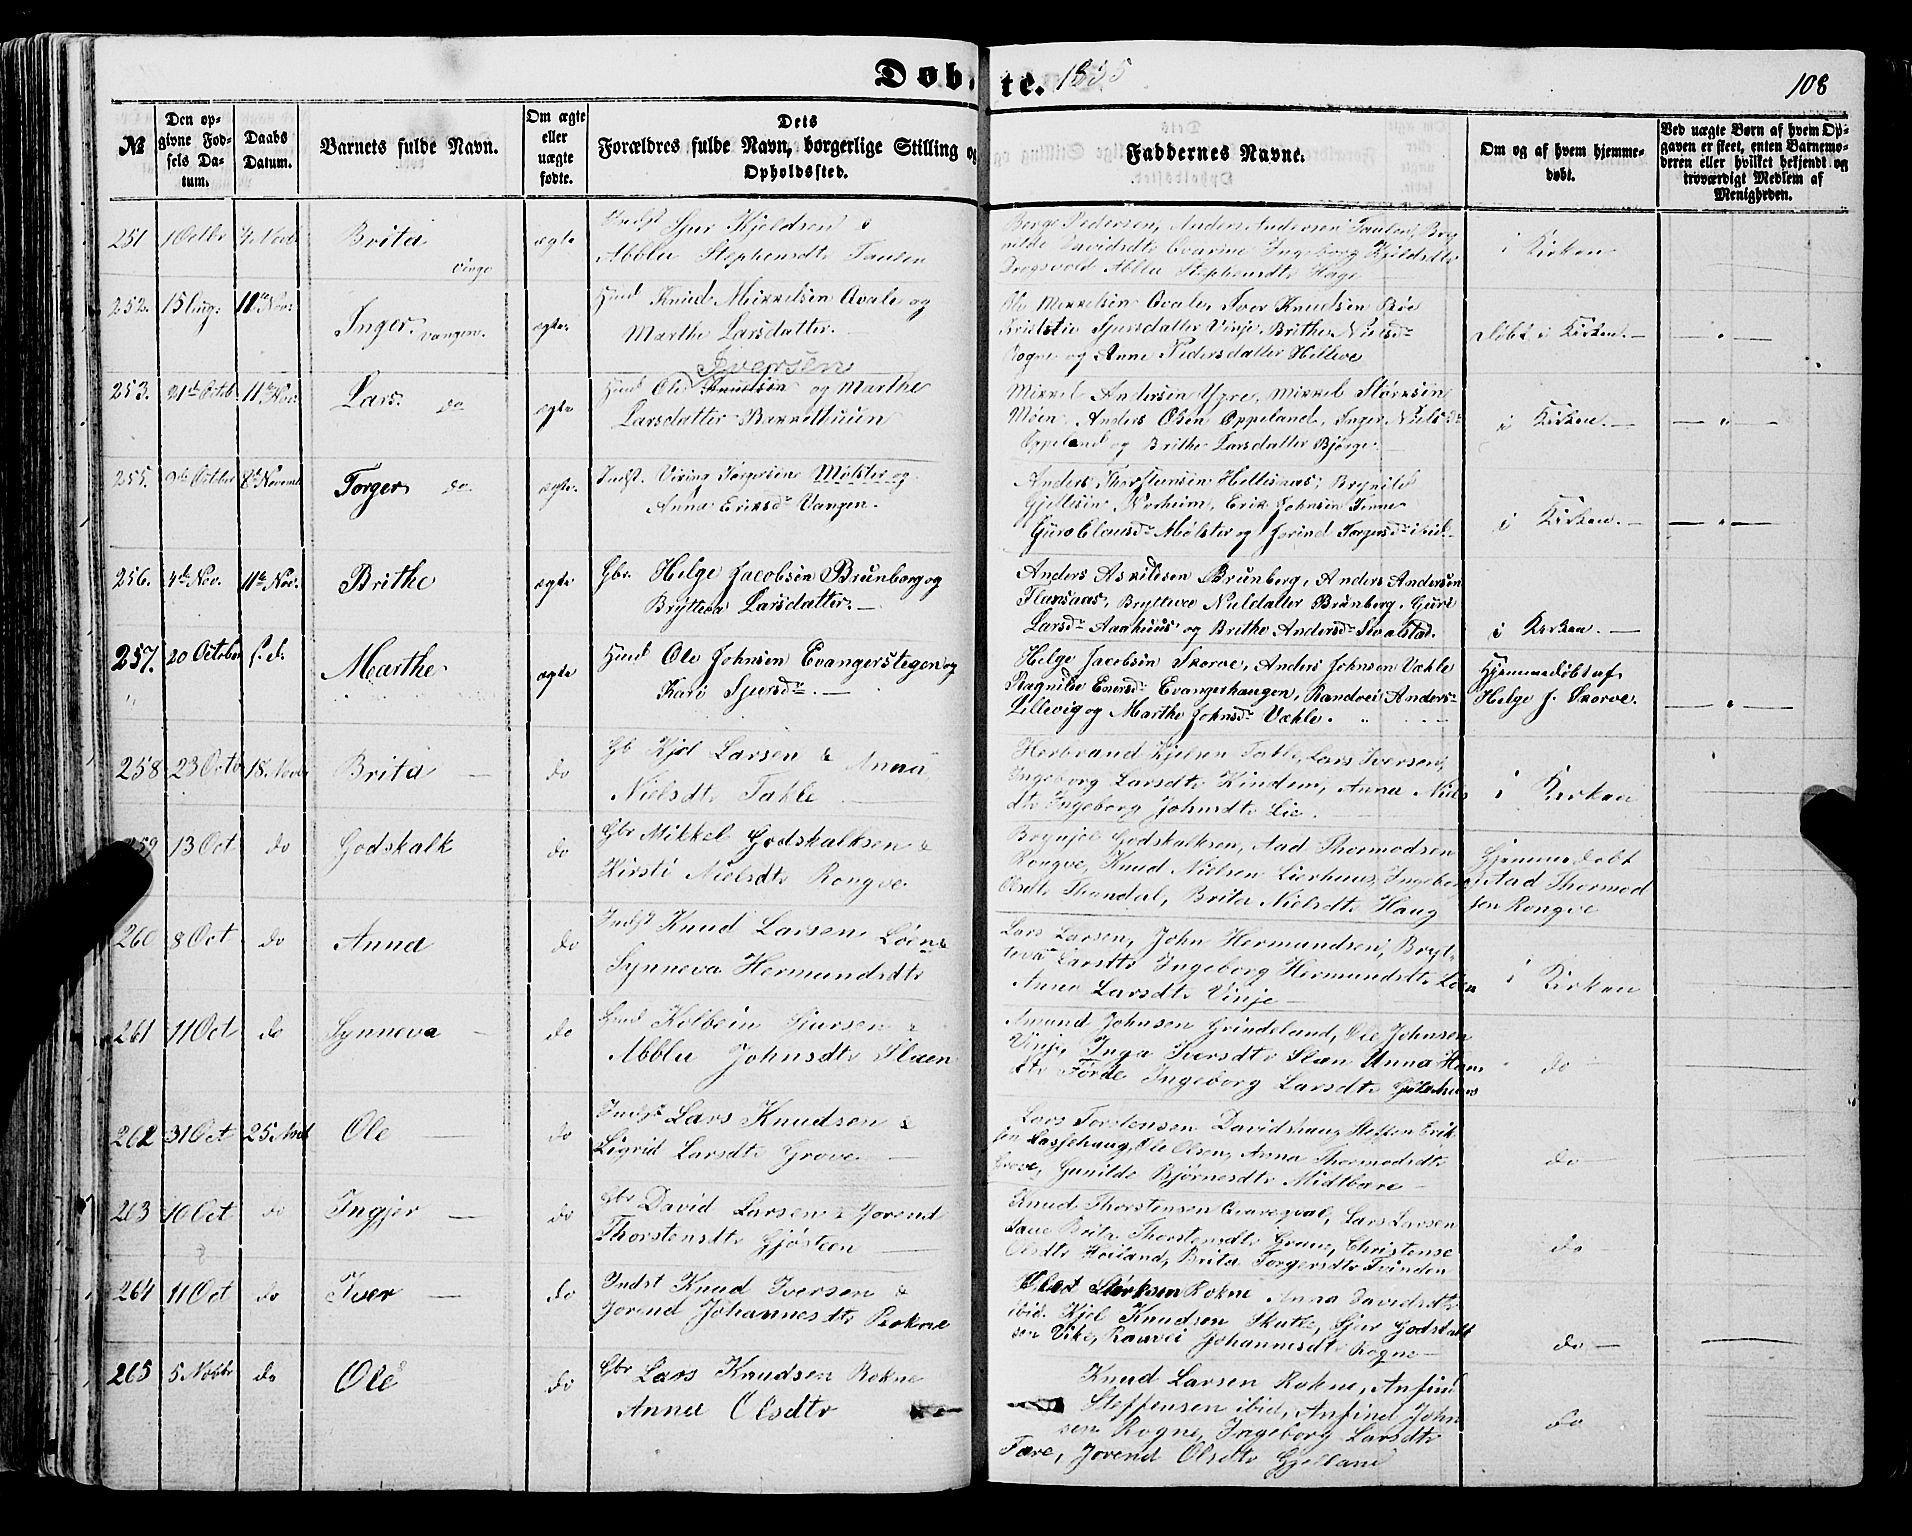 Døbte. 1855
108
№
Den op-
givne Fød-
sels Da-
tum.
Daabs
Datum.
Barnets fulde Navn.
Om ægte
eller
uægte
fødte.
Dets
Forældres fulde Navn, borgerlige Stilling og
Opholdssted.
Faddernes Navne.
Om og af hvem hjemme-
døbt.
Ved uægte Børn af hvem Op-
gaven er skeet, enten Barnemo-
deren eller hvilket bekjendt og
troværdigt Medlem af
Menigheden.
251 1 Octbr Novbr Brita Vinge ægte
Indst Sjur Kjeldsen &
Abblu Stephensdtr Taulen
Børge Pedersen, Anders Andersen Taulen, Brynilde Davidsdtr Ingeborg Kjeldsdtr
Abblu Stephensdtr Hage
i Kirken
252. 15 Aug: 11te Nov: Inger. Vangen. ægte.
Huusd Knud Mikkelsen Qvale og
Marthe Larsdatter. —
Ole Mikkelsen Qvale, Iver Knudsen Røe
Kriststie Sjursdatter Vinje, Brithe Nielsdr
Rogne og Anne Pedersdatter Hilleve
Døbt i Kirken. —
— " —
253. 21de Octob 11te Nov. Lars. do ægte
Iversen
Huusd Ole Knudsen og Marthe
Larsdatter Bakkethuun
Mikkel Andersen Ygre, Mikkel Størksen
Møen, Anders Olsen Oppeland, Inger Nielsdr
Oppeland og Brithe Larsdatter Bjørge.
i Kirken. —
— " —
255. October 8de Novemb Torger do ægte.
Indst. Viking Torgersen Mølster og
Anna Eriksdr Vangen.
Anders Thorstensen Hellesnæs, Brynild
Gjellesen Norheim, Erik Johnsen Finne
Guro Clausdr Mølster og Jorind Torgersdr ibid.
i Kirken. —
— " —
256. 4de Nov. 11te Nov. Brithe ægte
Gbr. Helge Jacobsen Brunborg og
Brytteva Larsdatter. —
Anders Askildsen Brunberg, Anders Andersen
Flansaas, Bryttevæ Nieldatter Brunberg, Guri
Larsdr Aarhuus og Brithe Andersdr Sivalstad.
i Kirken. —
257. 20 October s. d. Marthe ægte
Huusd Ole Johnsen Evangerstegen og
Kari Sjursdr. —
Helge Jacobsen Skorve, Anders Johnsen Vækle
Ragnilde Eversdr Evangerhaugen, Randvei Andersdr
Lillevig og Marthe Johnsdr Vækle.
Hjemmedøbt af
Helge J. Skorve.
— " —
258 23 Octo 18. Novbr Brita — do
Gb Kjel Larsen & Anna
Nielsdtr Takle —
Herbrand Kjelsen Takle, Lars Iversen,
Ingeborg Larsdtr Kindem, Anna Niels
dtr Ingeborg Johnsdtr Lie —
i Kirken
259 13 Oct do Godskalk do
Gbr Mikkel Godskalksen &
Kirsti Nielsdtr Rongve
Brynjel Godskalksen, Aad Thormodsen
Rongve, Knud Nielsen Lierhuus, Ingeborg
Olsdtr Thundal, Brita Nielsdtr Haug
Hjemmedøbt
af Aad Thormod
sen Rongve
260 8 Oct do Anna do
Indst Knud Larsen Løen &
Synneva Hermundsdtr
Lars Larsen, John Hermundsen, Bryt-
teva Larsdtr Ingeborg Hermundsdtr Løen
Anna Larsdtr Vinje —
i Kirken
261 11 Oct do Synneva — do
Huusd Kolbein Sjursen &
Abblu Johnsdtr Slaen
Amund Johnsen Grindeland, Ole Johnsen
Vinje Inga Iversdtr Slæn Anna Hans
dtr Førde Ingeborg Larsdtr
do —
262 31 Oct 25 Nov Ole — do
Indst Lars Knudsen &
Sigrid Larsdtr Grove —
Lars Torstensen Davidshaug Steffen Erik-
sen Lassehaug, Ole Olsen, Anna Thormodsdtr
Grove, Gunilde Bjørnesdtr Midtbøre —
do —
263 10 Oct do Ingjer — do
Gbr David Larsen & Jorend
Thorstensdtr Gjøsteen —
Knud Thorstensen Gravequal, Lars Larsen
Brita Thorstensdtr Graue, Christense
Olsdtr Høiland, Brita Torgersdtr Tvinden
do
264 11 Oct do Iver — do
Indst Knud Iversen &
Jorend Johannesdtr Rokne
Olav Størksen Rokne Anna Davidsdtr
ibid. Kjel Knudsen Skutle, Sjur Godskalk
sen Vike, Ranvei Johannesdtr Rogne —
do —
265 5 Novbr do Ole do
Gbr Lars Knudsen Rokne
Anna Olsdtr
Knud Larsen Rokne, Anfind
Steffensen ibid, Anfind John
sen Rogne, Ingeborg Larsdtr
Fære, Jorend Olsdtr Gjelland
do